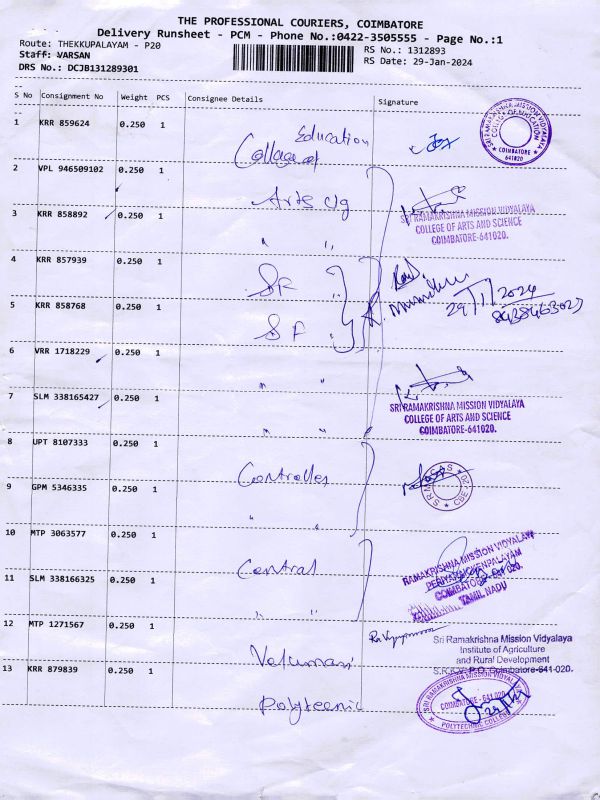 THE PROFESSIONAL COURIERS, COIMBATORE
Delivery Runsheet - PCM - Phone No.:0422-3505555 - Page No.:1
Route: THEKKUPALAYAM - P20
RS No.: 1312893
Staff: VARSAN
RS Date: 29-Jan-2024
DRS No.: DCJB131289301
S No Consignment No Weight PCS Consignee Details Signature
1 KRR 859624 0.250 1 College of Education
SRI RAMAKRISHNA MISSION VIDYALAYA
COLLEGE OF EDUCATION
COIMBATORE
641020
2 VPL 946509102 0.250 1 Arts clg
SRI RAMAKRISHNA MISSION VIDYALAYA
COLLEGE OF ARTS AND SCIENCE
COIMBATORE-641020.
3 KRR 858892 0.250 1 " "
4 KRR 857939 0.250 1 SF
29/1/2024
8438463027
5 KRR 858768 0.250 1 SF
6 VRR 1718229 0.250 1 " "
7 SLM 338165427 0.250 1 " "
SRI RAMAKRISHNA MISSION VIDYALAYA
COLLEGE OF ARTS AND SCIENCE
COIMBATORE-641020.
8 UPT 8107333 0.250 1 Controller
9 GPM 5346335 0.250 1 " "
10 MTP 3063577 0.250 1 Central
RAMAKRISHNA MISSION VIDYALAYA
PERIYANAICKENPALAYAM
COIMBATORE
TAMIL NADU
11 SLM 338166325 0.250 1 " "
12 MTP 1271567 0.250 1
Sri Ramakrishna Mission Vidyalaya
Institute of Agriculture
and Rural Development
S.R.K.V. P.O. Coimbatore-641 020.
13 KRR 879839 0.250 1 Polyteenic
SRI RAMAKRISHNA MISSION VIDYALAYA
COIMBATORE - 641 020
POLYTECHNIC COLLEGE